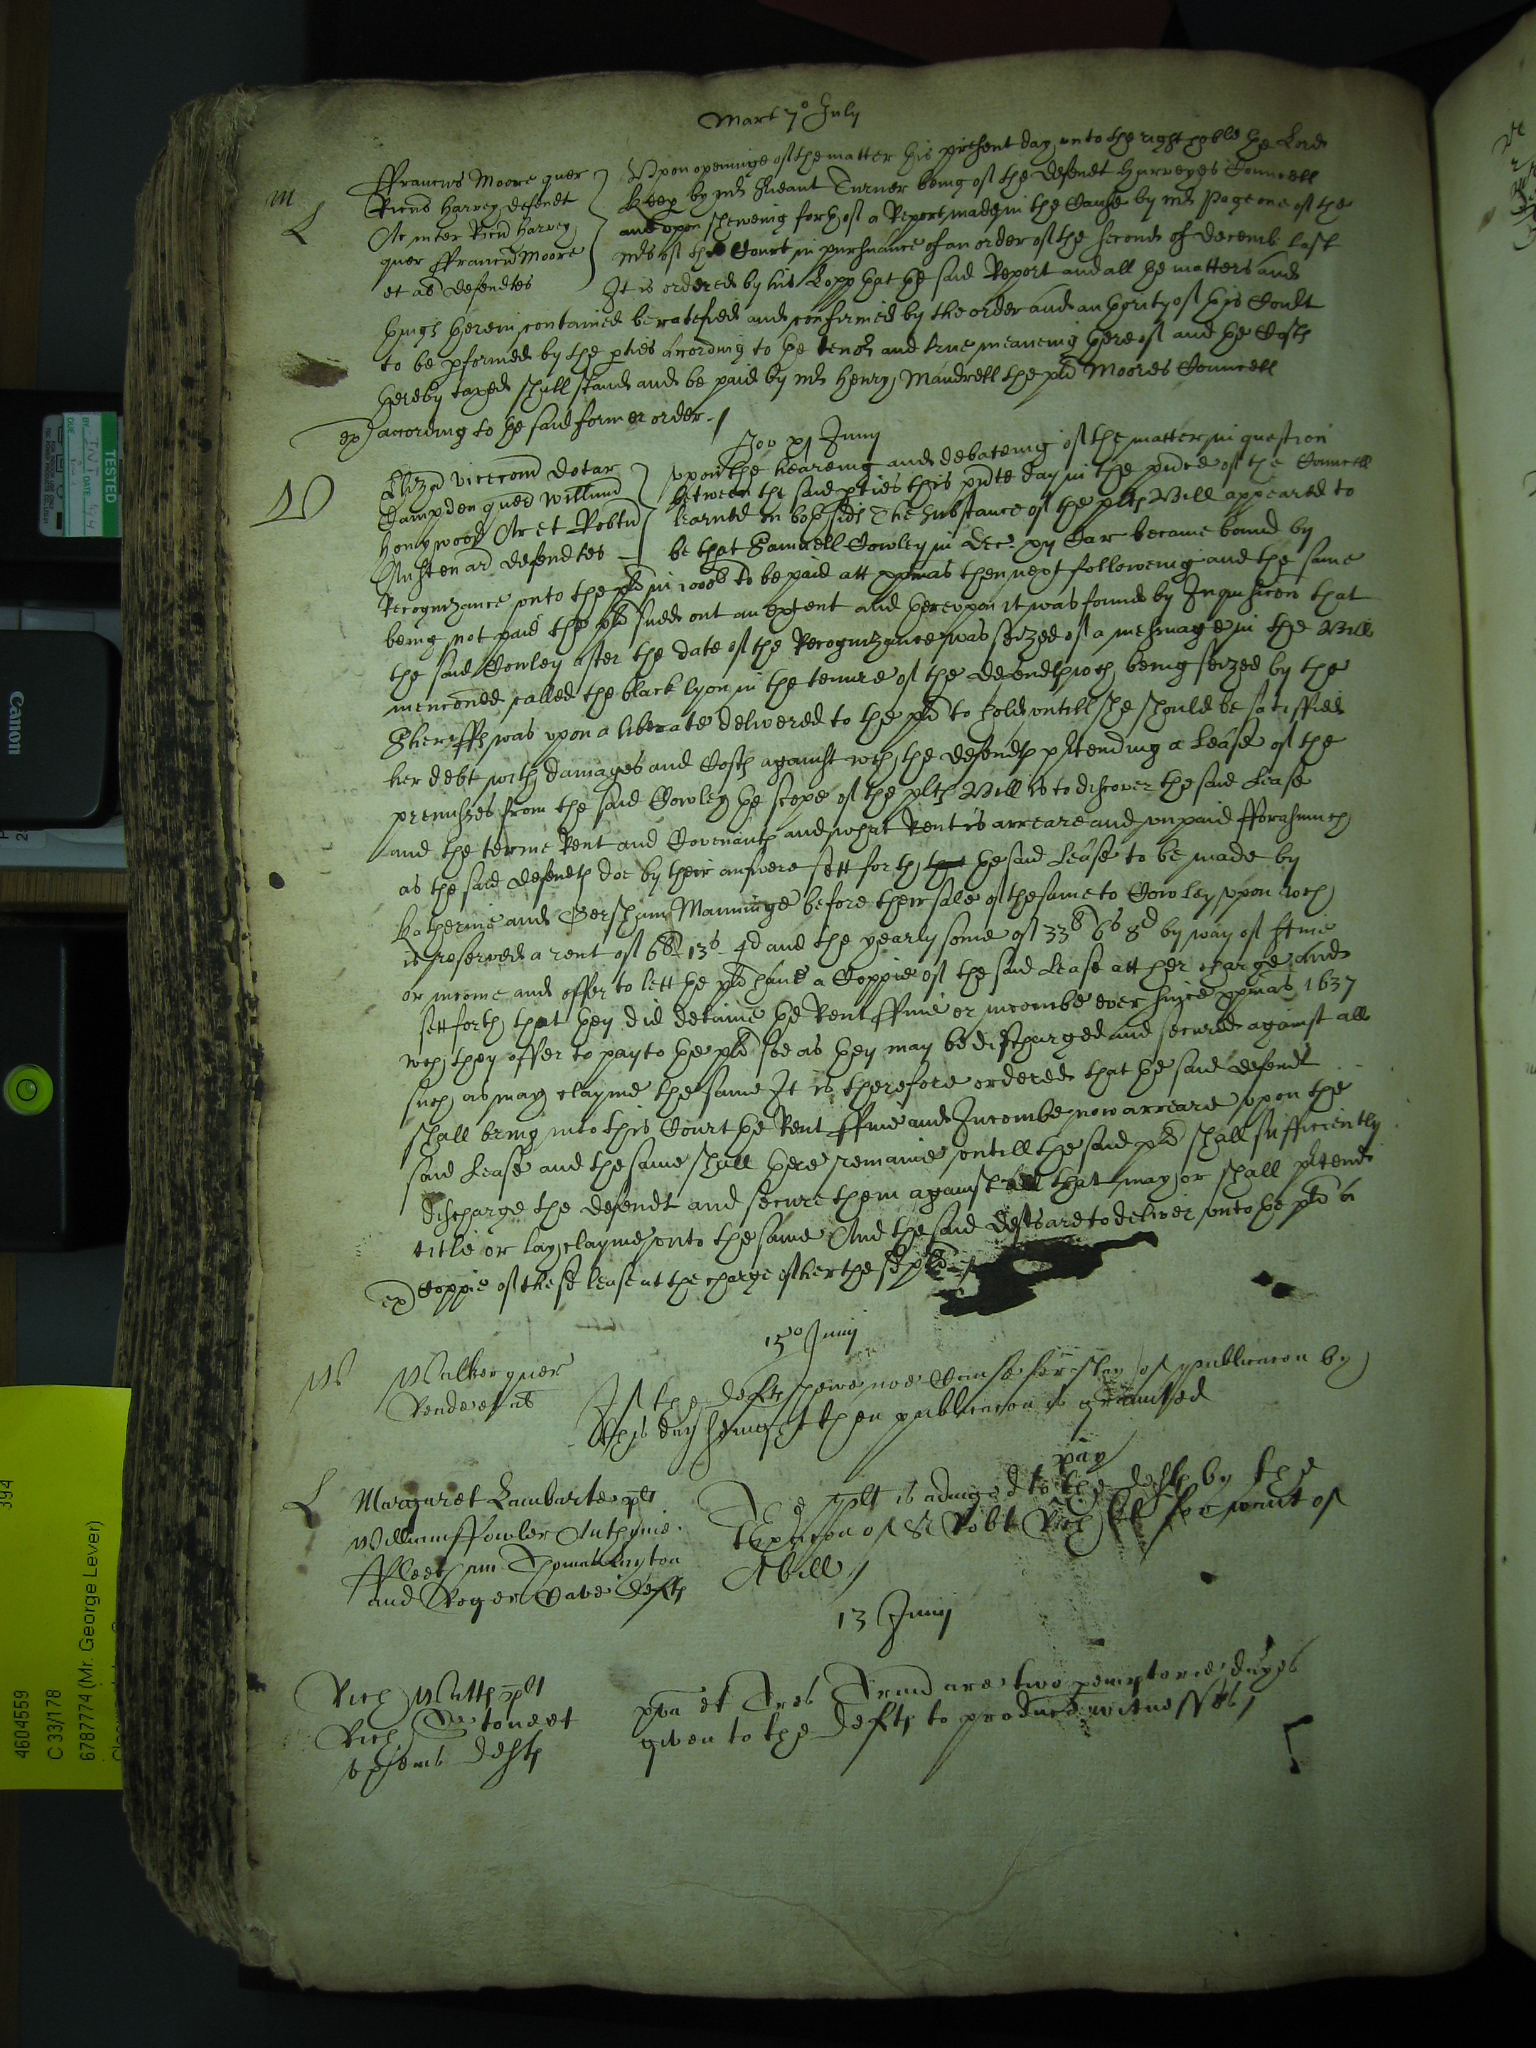 Mart 7o July
M
L
ffrancus Moore quer
Ricus Harvey defendt
Ac inter Ricu Harvey
quer ffrancu Moore
et al defendtes
Vpon openinge of the matter this present day vnto the right hoble the Lord
Keep by Mr Srieant Turner being of the defendt Harveyes Councell
and vpon shewing forth of a Report made in the Cause by Mr Page one of the
Mrs of this Court in pursuance of an order of the second of decemb last
It is ordered by his Lopp that the said Report and all the matters and
things therein contained be ratefied and confirmed by the order and authority of this Court
to be pformed by the pties according to the tenor and true meaneing thereof and the Costs
thereby taxed shall stand and be paid by Mr Henry Maudrell the plt Moores Councell
ex according to the said former order
Jov xj Junij
D
Eliza vicecom dotar
Campden quer Willum
Honywood Ar et Robtu
Austen ar defendtes
vpon the heareing and debateing of the matter in question
betweene the said pties this pnte day in the pnce of the Councell
learned on both sids The substance of the plts Bill appeared to
be that Samuell Cowley in Dec. xij Car became bound by
Recognizance vnto the plt in 1000l to be paid att xpmas then next followeing and the same
being not paid the plt sued out an extent and therevpon it was found by Inquisicon that
the said Cowley after the date of the Recognizance was seized of a messuage in the Bill
mencõned called the black lyon in the tenure of the defendts wch being seized by the
Sheriffe was vpon a liberate delivered to the plt to hold vntill she should be satisfied
her debt with damages and Costs against wch the defendts pretending a Lease of the
premisses from the said Cowley the scope of the plts Bill is to discover the said Lease
and the terme Rent and Covenants and what Rent is arreare and vnpaid fforasmuch
as the said defendts doe by their answere sett forth the said Lease to be made by
Katherine and Gershum Manninge before their sale of the same to Cowley vpon wch
is reserved a rent of 66l 13s 4d and the yearly some of 33l 6s 8d by way of ffine
or income and offer to lett the plt have a Coppie of the said Lease att her charge and
sett forth that they did detaine the Rent ffine or incombe ever since xpmas 1637
wch they offer to pay to the plt soe as they may be discharged and secured against all
such as may clayme the same It is therefore ordered that the said defendt
shall bring into this Court the Rent ffine and Incombe now arreare vpon the
said Lease and the same shall there remaine vntill the said plt shall sufficiently
discharge the defendt and secure them against all that may or shall ptend
title or lay clayme vnto the same And the said defts are to deliver vnto the plt a
ex Coppie of the sd lease at the charge of her the sd plt
15o Junij
W
Walker quer
If the defts shewe noe Cause for stay of publicacon by
this day sennight then publicacon is graunted
L
Margaret Lambarte plt
William ffowler Anthonie
and Roger Cave defts
The plt is adiudged to pay the defts by the
of Sr Robt Rich for want of
A bill
13 Junij
Rich Watts plt
defts
are two pemptorie dayes
given to the defts to produce witnesses
TESTED
BY
DATE
DUE
Canon
394
4604559
C 33/178
6787774 (Mr. George Lever)